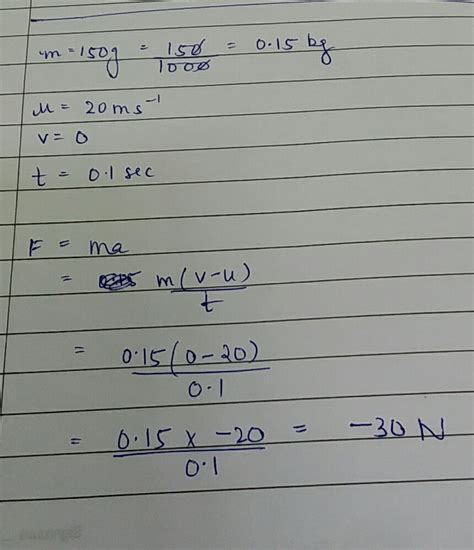 m = 150g = 150/1000 = 0.15 kg
u = 20 ms⁻¹
v = 0
t = 0.1 sec
F = ma
= m(v-u)/t
= 0.15(0-20)/0.1
= 0.15 x -20/0.1 = -30 N